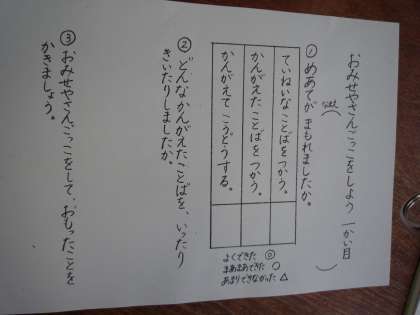 おみせやさんごっこをしよう 一かい目
なまえ( )
① めあてが まもれましたか。
ていねいな ことばを つかう。
かんがえた ことばを つかう。
かんがえて こうどうする。
よくできた ◎
まあまあできた ○
あまりできなかった △
② どんな かんがえた ことばを、いったり
きいたりしましたか。
③ おみせやさんごっこをして、おもったことを
かきましょう。